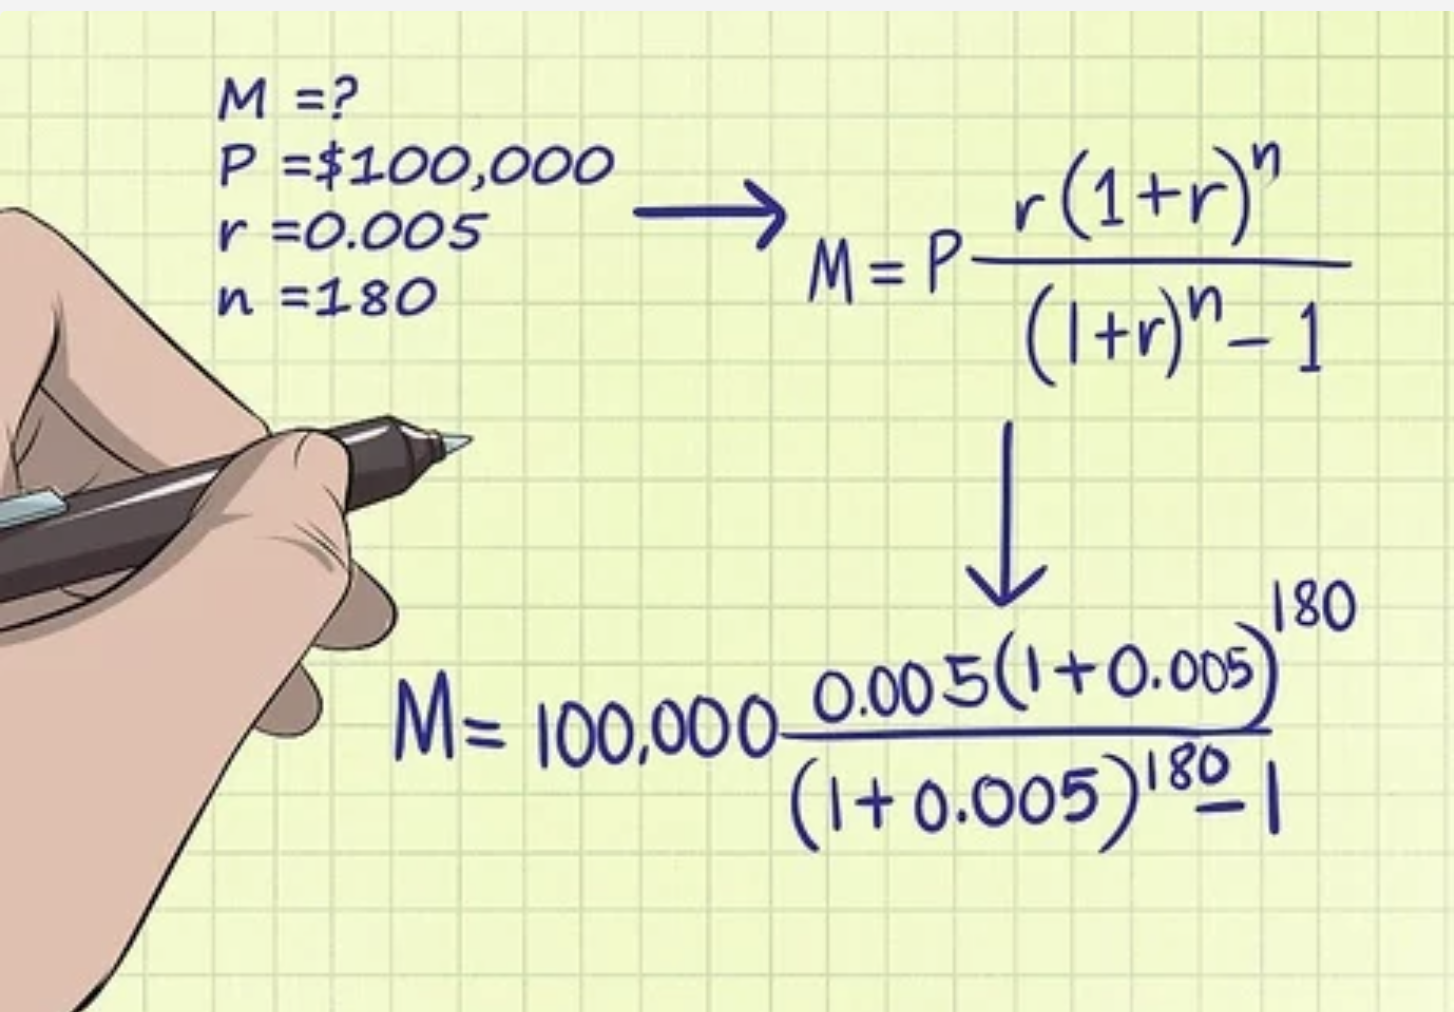 M =?
P =$100,000
r =0.005
n =180
M = P r(1+r)^n / (1+r)^n - 1
M = 100,000 0.005(1+0.005)^180 / (1+0.005)^180 - 1